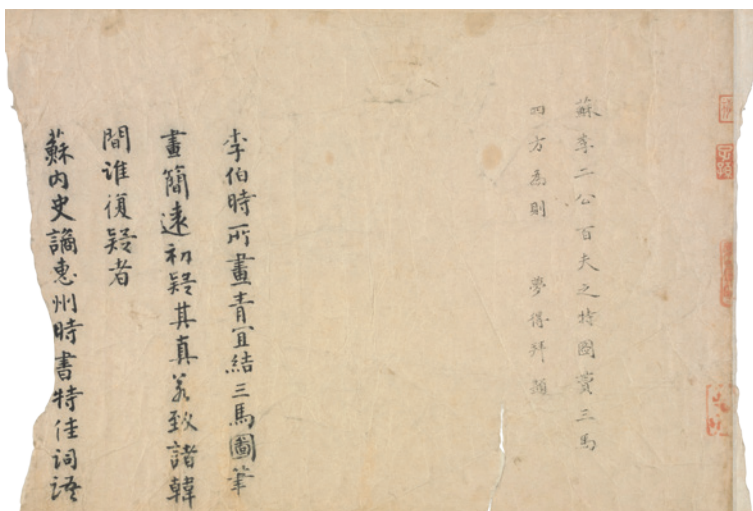 蘇李二公百夫之特圖賛三馬
四方為則 夢得拜題
李伯時所畫青宜結三馬圖筆
畫簡遠初疑其真若致諸韓
間誰復疑者
蘇內史謫惠州時書特佳詞語